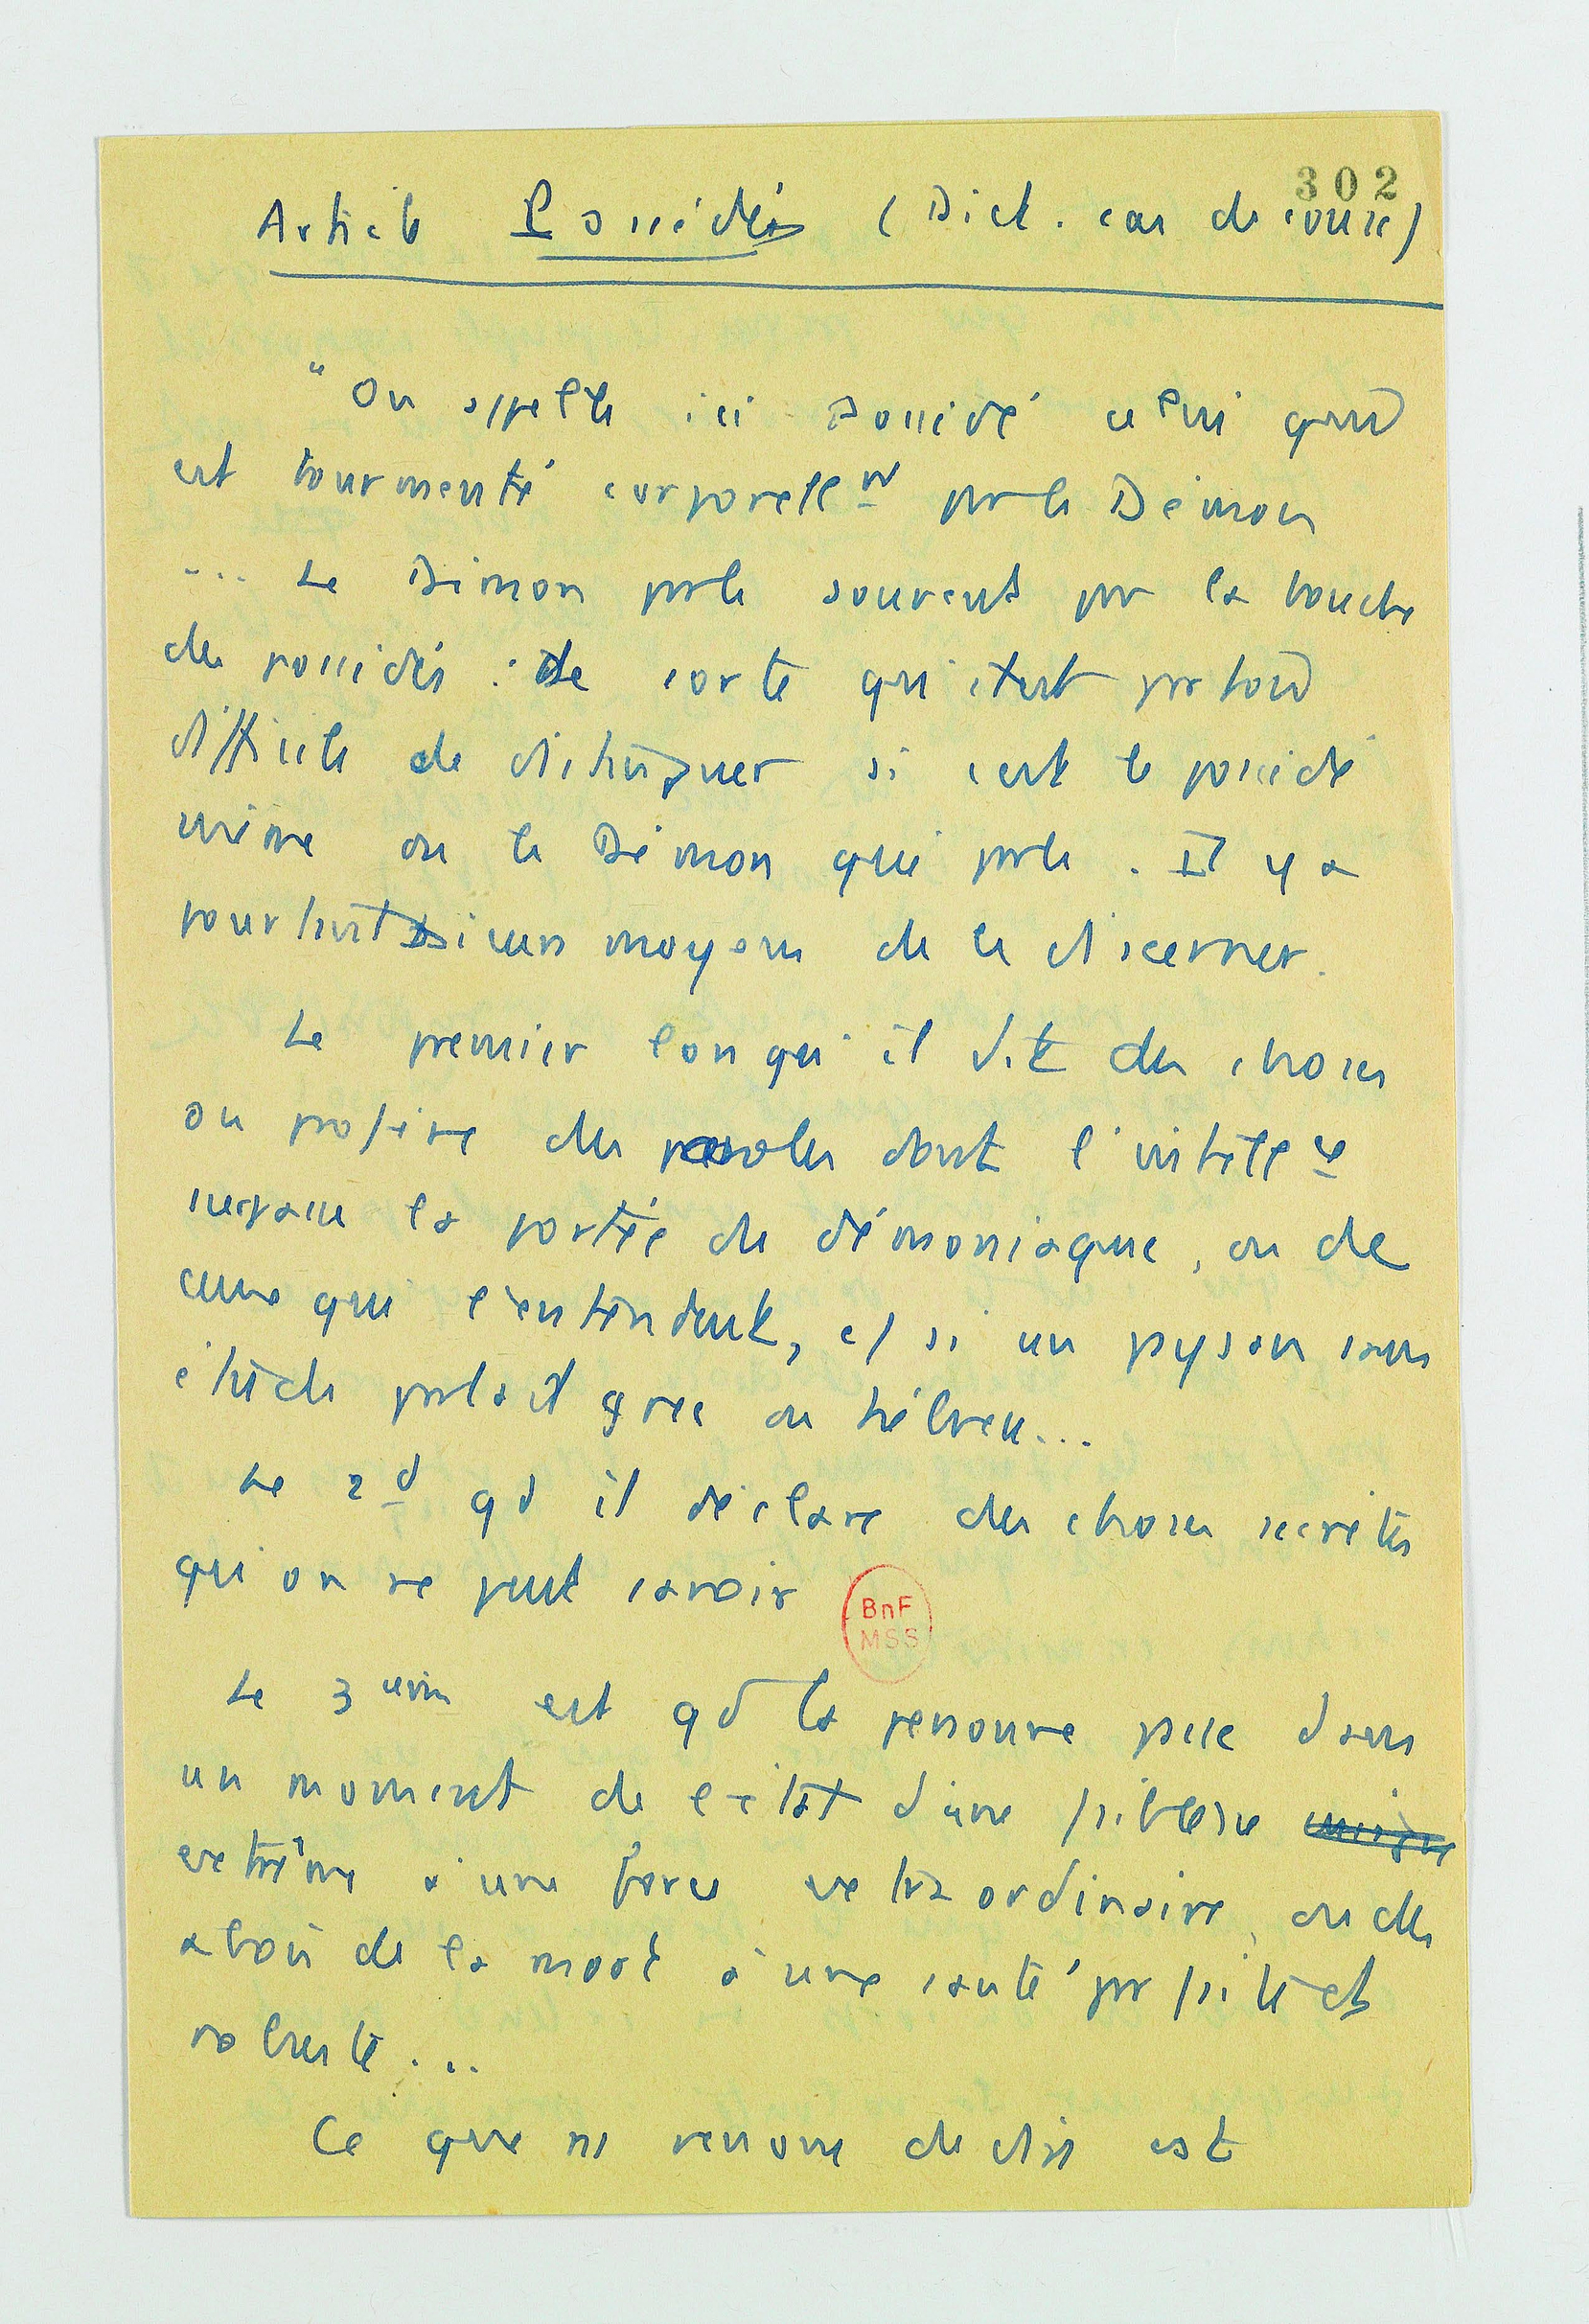 302
Article Possédés (Dict. cas de consc)
"On appelle ici Possédé celui qui
est tourmenté corporellt par le Démon
... Le Démon parle souvent par la bouche
des possédés : de sorte qu'il est parfois
difficile de distinguer si c'est le possédé
même ou le Démon qui parle. Il y a
pourtant moyens de le discerner.
Le premier lorsqu'il dit des choses
ou profère des paroles dont l'intellce
surpasse la portée du démoniaque, ou de
ceux qui l'entendent, et si un paysan sans
étude parlait grec ou hébreu...
Le 2d qd il déclare des choses secrètes
qu'on ne peut savoir
BnF
MSS
Le 3ème est qd la personne passe dans
un moment de l'état d'une faiblesse
extrême à une force extraordinaire, ou des
abois de la mort à une santé parfaite et
robuste...
Ce que ns venons de dire est